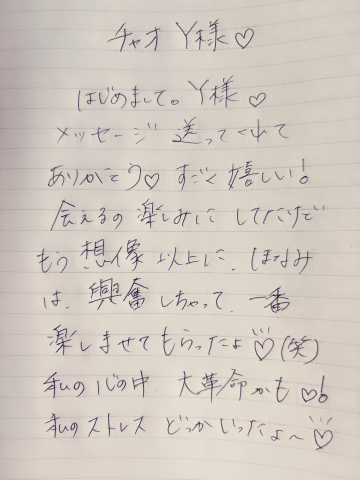 チャオ Y様♡
はじめまして。Y様♡
メッセージ 送ってくれて
ありがとう♡ すごく嬉しい!
会えるの楽しみに してたけど
もう想像以上に、ほなみ
は、興奮しちゃって、一番
楽しませてもらったよ♡(笑)
私の心の中 大革命かも♡b
私のストレス どっかいったよ〜♡